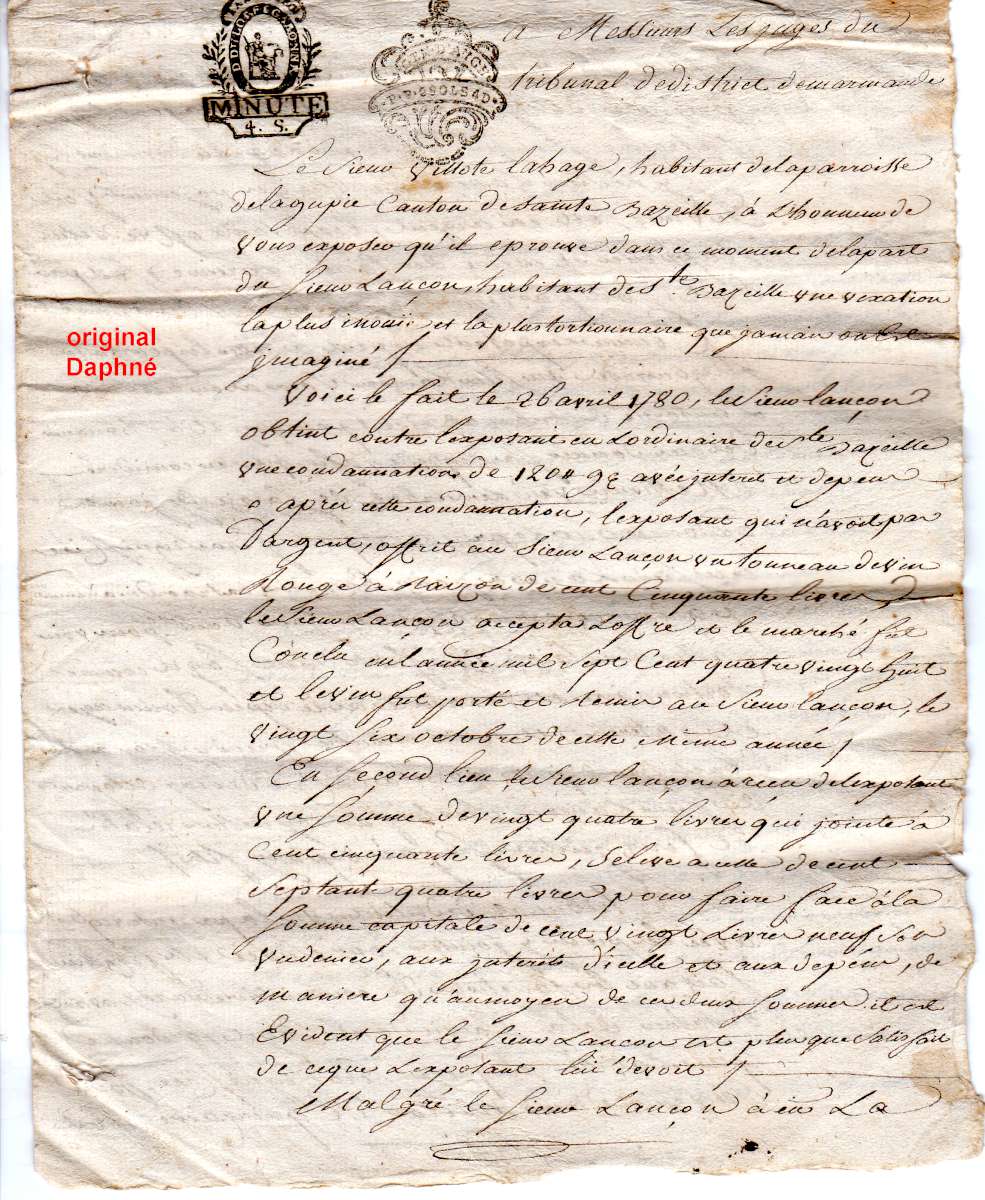 a Messieurs Les juges du
tribunal de district de marmande
MINUTE
4. S.
Le Sieur Villote lahage, habitant de la parroisse
de lagupie Canton de sainte Bazeille, à L'honneur de
vous exposer qu'il eprouve dans ce moment de la part
du Sieur Lançon, habitant de Ste. Bazeille une vexation
la plus inouïe et la plus tortionnaire que jamais on
imaginé
original
Daphné
Voici le fait le 26 avril 1780, le Sieur lançon
obtint contre l'exposant en L'ordinaire de Ste Bazeille
une condannation de 120 avec interets et depens
aprés cette condannation, l'exposant qui n'avoit pas
D'argent, offrit au Sieur Lançon un tonneau de vin
Rouge à Raizon de cent Cinquante livres
le Sieur Lançon accepta L'offre et le marché fut
Conclu en l'année mil Sept Cent quatre vingt huit
et le vin fut porté et Remis au Sieur lançon, le
vingt Six octobre de cette même année
En Second lieu le Sieur lançon à recu de l'exposant
une Somme de vingt quatre livres qui jointe à
Cent cinquante livres, S'eleve a celle de cent
Septante quatre livres pour faire face à la
Somme capitale de cent vingt Livres neuf Sols
un denier, aux interets d'icelle et aux depens, de
maniere qu'au moyen de ces deux Sommes il est
Evident que le Sieur Lançon est plus que Satisfait
de ce que L'exposant lui devoit
Malgré le Sieur Lançon à eu La